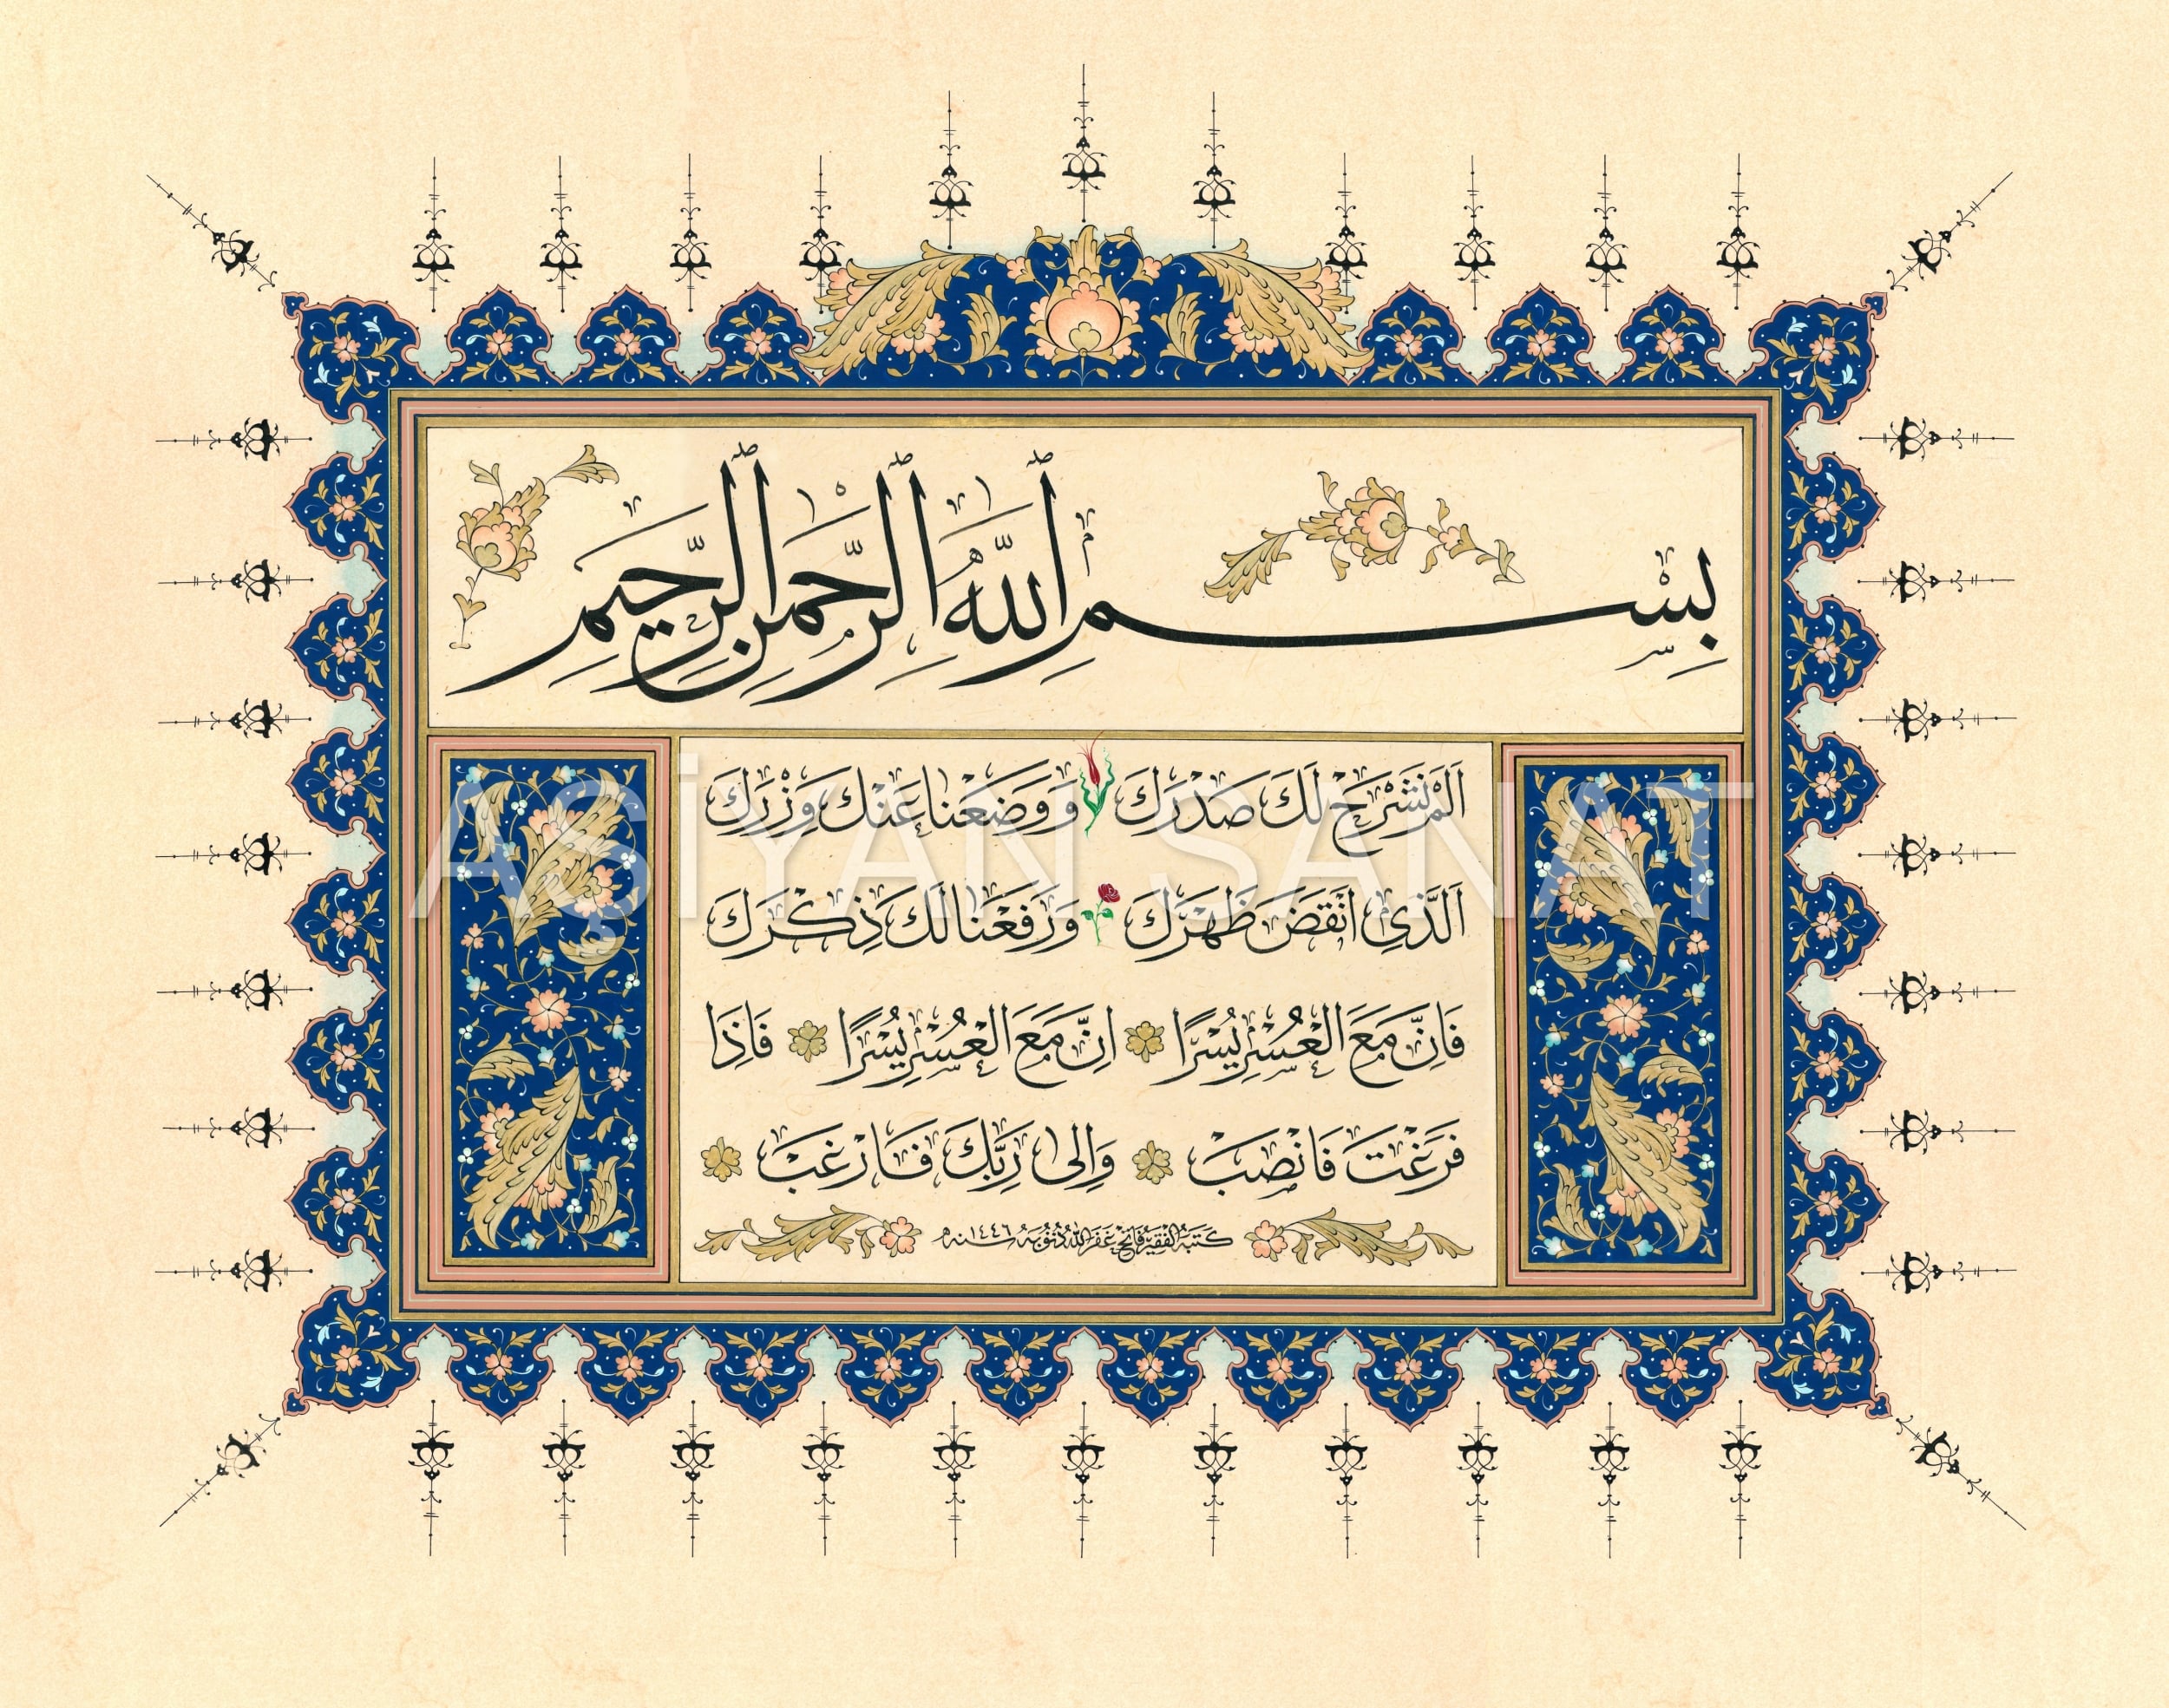 بِسْمِ اللّٰهِ الرَّحْمٰنِ الرَّحِيمِ
اَلَمْ نَشْرَحْ لَكَ صَدْرَكَ وَوَضَعْنَا عَنْكَ وِزْرَكَ
AŞİYAN SANAT
اَلَّذِى اَنْقَضَ ظَهْرَكَ وَرَفَعْنَا لَكَ ذِكْرَكَ
فَاِنَّ مَعَ الْعُسْرِ يُسْرًا اِنَّ مَعَ الْعُسْرِ يُسْرًا فَاِذَا
فَرَغْتَ فَانْصَبْ وَاِلٰى رَبِّكَ فَارْغَبْ
كَتَبَهُ الْفَقِيرُ فَاتِحْ غَفَرَ اللّٰهُ ذُنُوبَهُ سنه ١٤٤٦